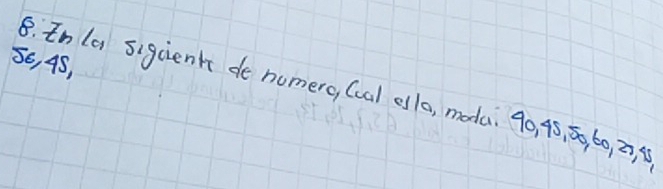 8. En la siguiente de numero, Cual es la, moda: 40, 45, 50, 60, 25, 45,
50, 45,